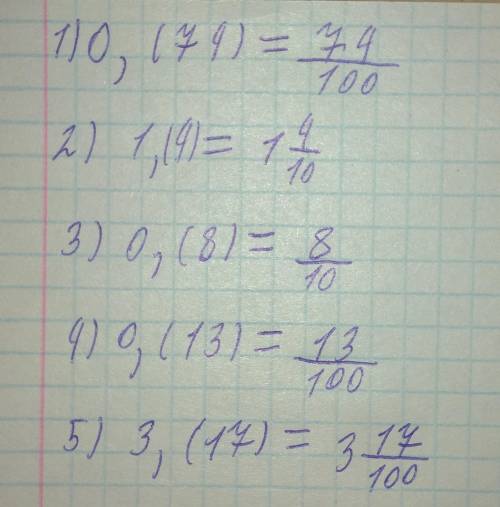 1) 0,(74) = 74/100
2) 1,(4) = 1 4/10
3) 0,(8) = 8/10
4) 0,(13) = 13/100
5) 3,(17) = 3 17/100